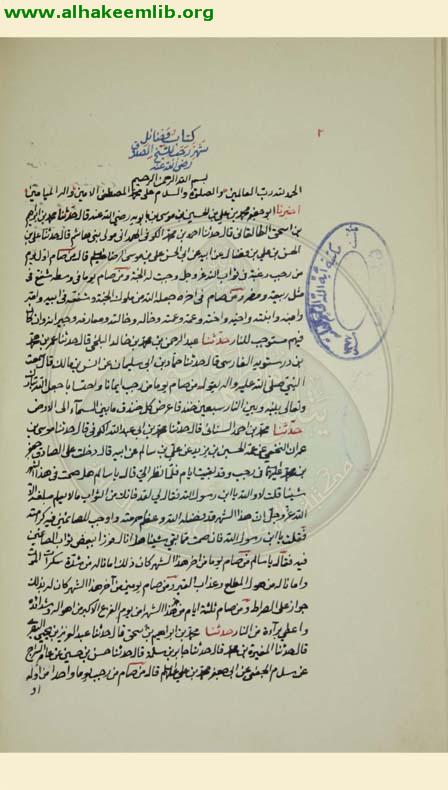 www.alhakeemlib.org
٢
كتاب فضائل
شهر رجب للشيخ الصدوق
رضي الله عنه
بسم الله الرحمن الرحيم
الحمد لله رب العالمين والصلوة والسلام على محمد المصطفى الامين واله الميامين
اخبرنا ابو جعفر محمد بن علي بن الحسين بن موسى بن بابويه رضي الله عنه قال حدثنا محمد بن ابراهيم
بن اسحق الطالقاني قال حدثنا احمد بن محمد الكوفي الهمداني مولى بني هاشم قال حدثنا علي بن
الحسن بن علي بن فضال عن ابيه عن ابي الحسن علي بن موسى الرضا قال من صام اول يوم
من رجب رغبة في ثواب الله عز وجل وجبت له الجنة ومن صام يوما في وسطه شفع في
مثل ربيعة ومضر ومن صام في اخره جعله الله من ملوك الجنة وشفعه في ابيه وامه
وابنه وابنته واخيه واخته وعمه وعمته وخاله وخالته ومعارفه وجيرانه وان كان
فيهم مستوجب للنار حدثنا عبد الرحمن بن محمد بن خالد البلخي قال حدثنا محمد
بن درستويه الفارسي قال حدثنا حماد بن ابي سليمان عن انس بن مالك قال سمعت
النبي صلى الله عليه واله يقول من صام يوما من رجب ايمانا واحتسابا جعل الله تبارك
وتعالى بينه وبين النار سبعين خندقا عرض كل خندق ما بين السماء الى الارض
حدثنا محمد بن احمد السناني قال حدثنا محمد بن ابي عبد الله الكوفي قال حدثنا موسى بن
عمران النخعي عن عمه الحسين بن يزيد عن علي بن سالم عن ابيه قال دخلت على الصادق جعفر
بن محمد في رجب وقد بقيت ايام فلما نظر الي قال يا سالم هل صمت في هذا الشهر
شيئا قلت لا والله يا ابن رسول الله فقال لي لقد فاتك من الثواب ما لا يعلم مبلغه الا
الله عز وجل ان هذا الشهر قد فضله الله وعظم حرمته واوجب للصائمين فيه كرامته
فقلت يا ابن رسول الله فان صمت مما بقي شيئا هل انال فوزا ببعض ثواب الصائمين
فيه فقال يا سالم من صام يوما من اخر هذا الشهر كان ذلك امانا له من شدة سكرات الموت
وامانا له من هول المطلع وعذاب القبر ومن صام يومين من آخر هذا الشهر كان له بذلك
جوازا على الصراط ومن صام ثلثة ايام من هذا الشهر امن يوم الفزع الاكبر من اهواله وشدائده
واعطي براءة من النار حدثنا محمد بن ابراهيم بن اسحق قال حدثنا عبد العزيز بن يحيى البصري
قال حدثنا المغيرة بن محمد قال حدثنا جابر بن سلمة قال حدثنا حسن بن حسين عن عامر السراج
عن سلام الجعفي عن ابي جعفر محمد بن علي قال من صام من رجب يوما واحدا من اوله
او